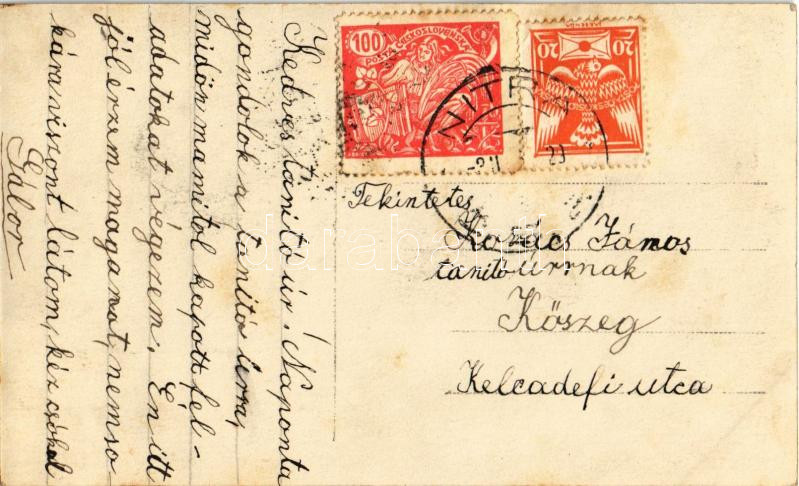 Kedves tánitó úr! Naponta
gondolok a tánitó úrra,
midőn mamitol kapott fel-
adatokat végezem. Én itt
jól érzem maganat, nemso
kára viszont látom, kéz csókol
Gábor
100
POSTA ČESKOSLOVENSKÁ
20 20
NITRA
23
Tekintetes
Kovács János
tanító úrrnak
Kőszeg
Kelcadefi utca
darabanth